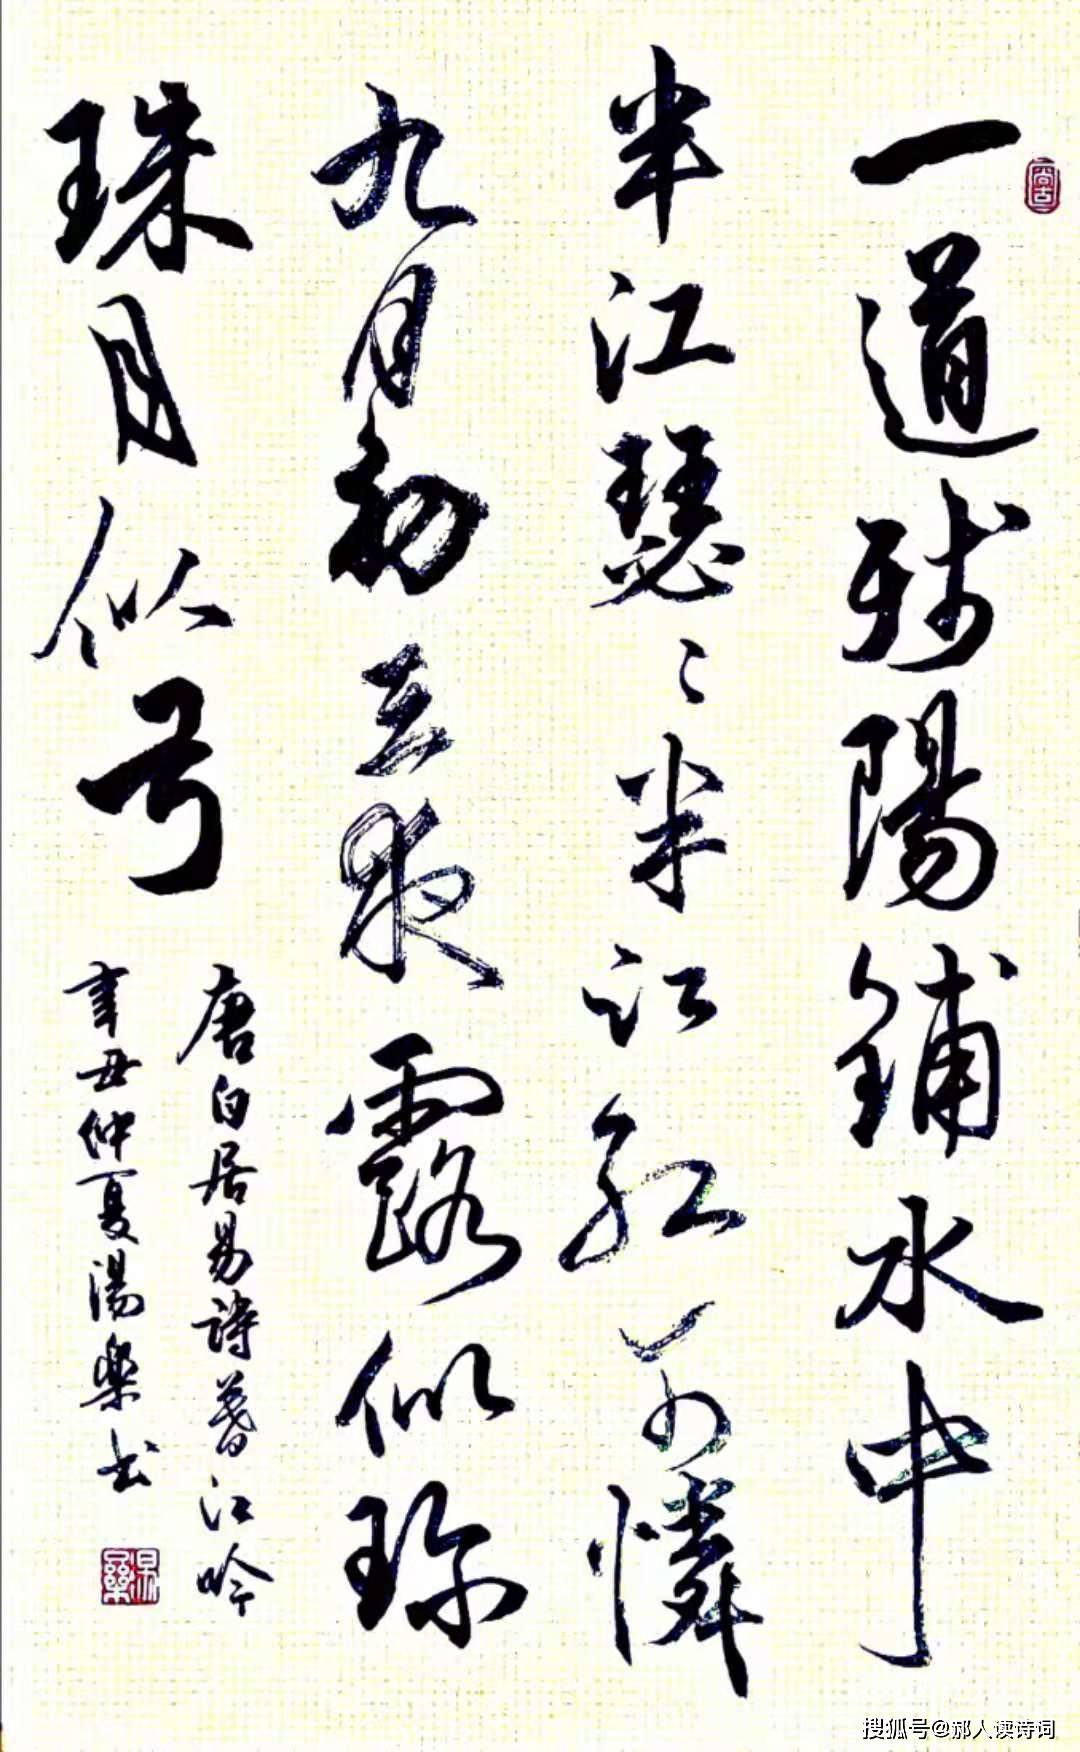 尚古
一道残陽鋪水中
半江瑟々半江红可憐
九月初三夜露似珍
珠月似弓
唐白居易詩暮江吟
辛丑仲夏湯樂书
湯樂
搜狐号@郝人读诗词